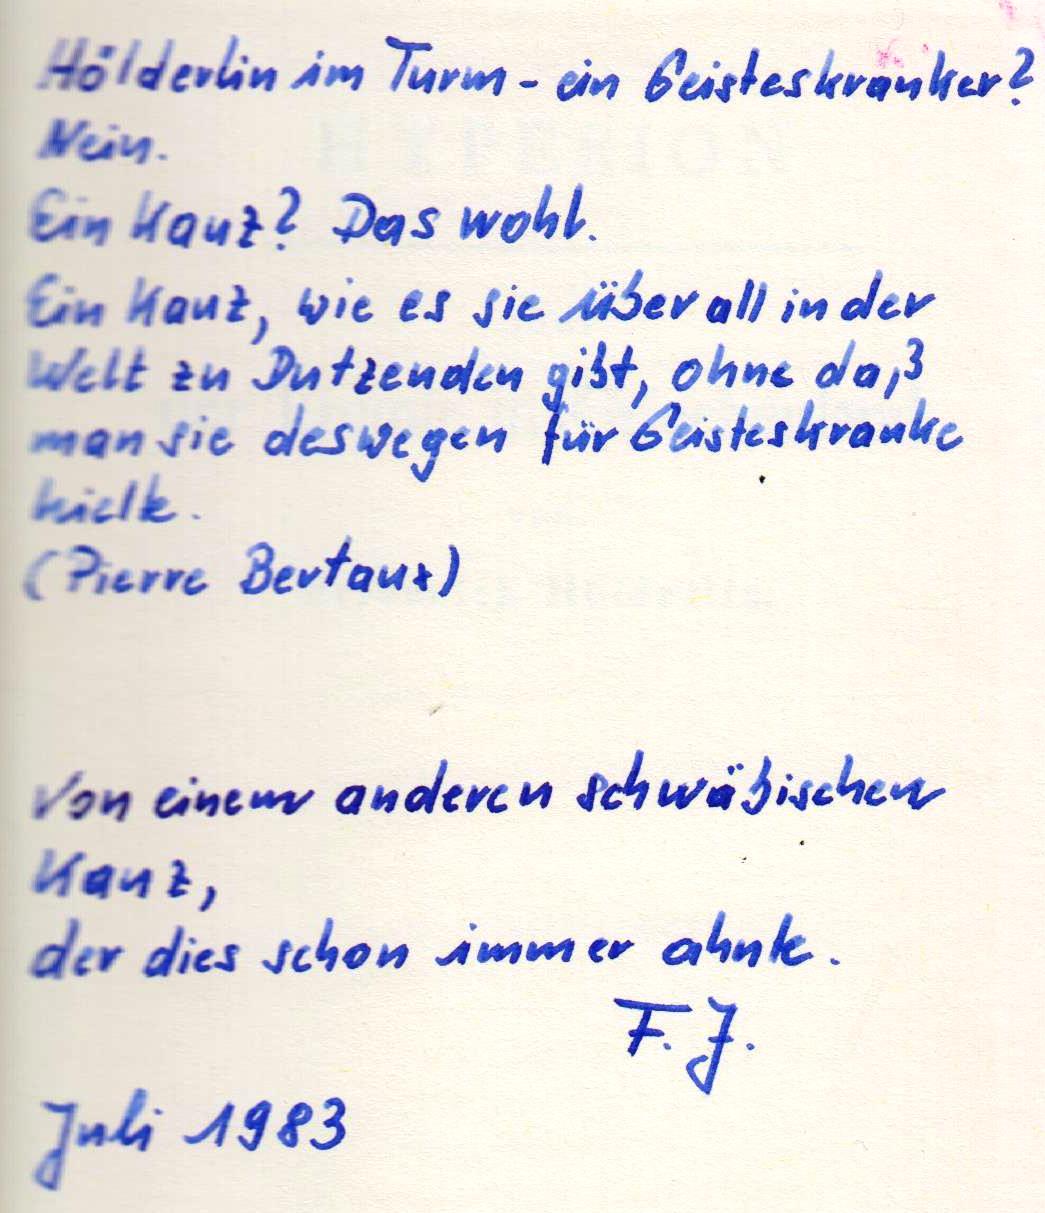 Hölderlin im Turm - ein Geisteskranker?
Nein.
Ein Kauz? Das wohl.
Ein Kauz, wie es sie überall in der
Welt zu Dutzenden gibt, ohne daß
man sie deswegen für Geisteskranke
hielte.
(Pierre Bertaux)
Von einem anderen schwäbischen
Kauz,
der dies schon immer ahnte.
F. J.
Juli 1983